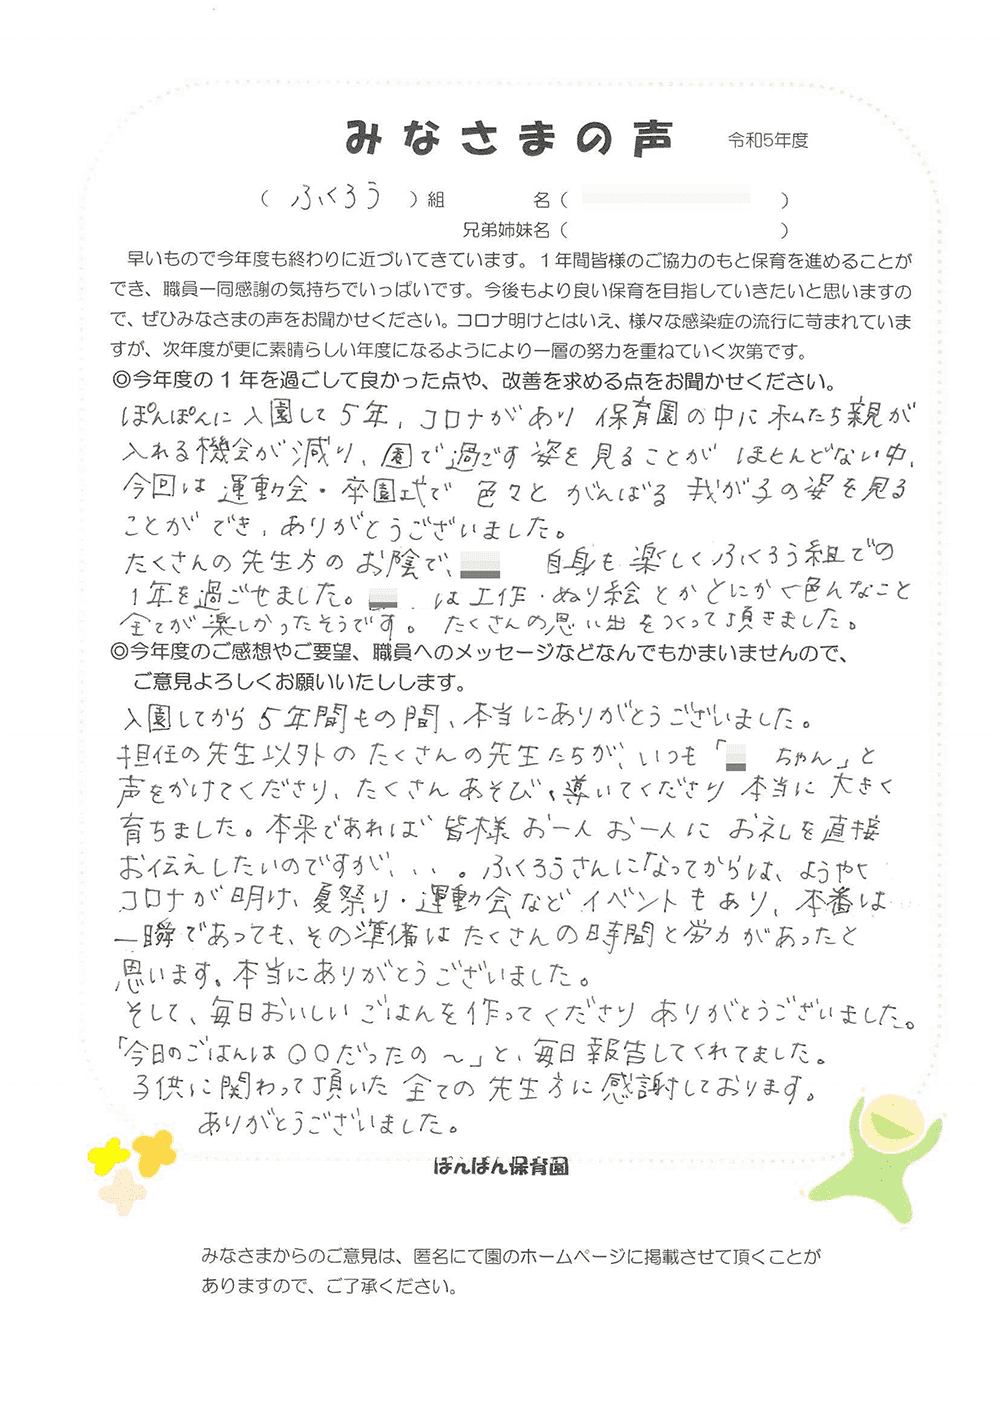 みなさまの声 令和5年度
( ふくろう )組 名( )
兄弟姉妹名( )
早いもので今年度も終わりに近づいてきています。1年間皆様のご協力のもと保育を進めることが
でき、職員一同感謝の気持ちでいっぱいです。今後もより良い保育を目指していきたいと思いますの
で、ぜひみなさまの声をお聞かせください。コロナ明けとはいえ、様々な感染症の流行に苛まれていま
すが、次年度が更に素晴らしい年度になるようにより一層の努力を重ねていく次第です。
◎今年度の1年を過ごして良かった点や、改善を求める点をお聞かせください。
ぽんぽんに入園して5年、コロナがあり 保育園の中に私たち親が
入れる機会が減り、園で過ごす姿を見ることが ほとんどない中、
今回は運動会・卒園式で 色々と がんばる 我が子の姿を見る
ことが でき、ありがとうございました。
たくさんの先生方の お陰で、 自身も楽しくふくろう組での
1年を過ごせました。 は工作・ぬり絵とかとにかく色んなこと
全てが楽しかったそうです。 たくさんの思い出をつくって頂きました。
◎今年度のご感想やご要望、職員へのメッセージなどなんでもかまいませんので、
ご意見よろしくお願いいたしします。
入園してから5年間もの間、本当にありがとうございました。
担任の先生以外のたくさんの先生たちが、いつも「 ちゃん」と
声をかけてくださり、たくさんあそび、導いてくださり 本当に 大きく
育ちました。本来であれば 皆様 お一人 お一人に お礼を直接
お伝えしたいのですが、、、。ふくろうさんになってからは、ようやく
コロナが明け、夏祭り・運動会など イベントもあり、本番は
一瞬であっても、その準備はたくさんの時間と労力があったと
思います。本当にありがとうございました。
そして、毎日おいしいごはんを作ってくださり ありがとうございました。
「今日のごはんは〇〇だったの〜」と、毎日報告してくれてました。
子供に関わって頂いた 全ての 先生方に 感謝しております。
ありがとうございました。
ぽんぽん保育園
みなさまからのご意見は、匿名にて園のホームページに掲載させて頂くことが
ありますので、ご了承ください。